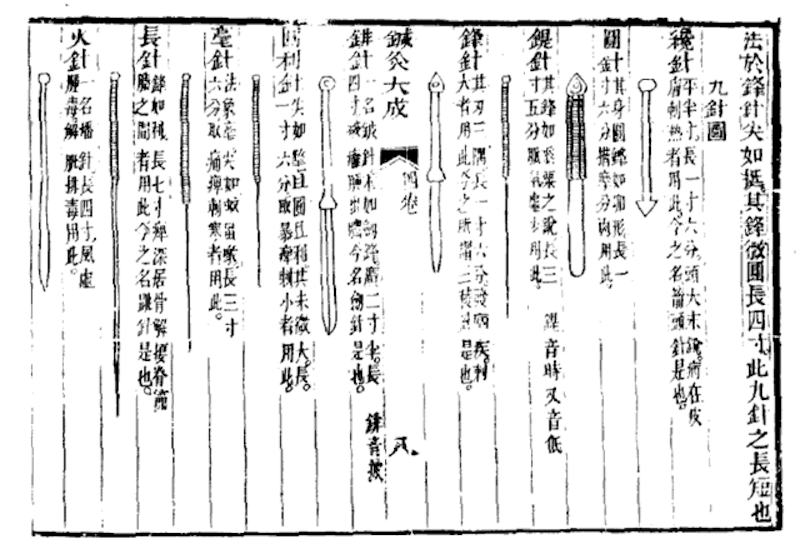 法於鋒針尖如挺其鋒微圓長四寸此九針之長短也
九針圖
鑱針
平半寸長一寸六分。頭大末銳。病在皮
膚刺熱者用此。今之名箭頭針是也。
圓針
其身圓鋒如卵形長一
寸六分揩摩分肉用此。
鍉針
其鋒如黍粟之銳長三
寸五分脈氣虛少用此。
鍉音時又音低
鋒針
其刃三隅長一寸六分發痼疾刺
大者用此今之所謂三稜針是也。
鍼灸大成
四卷
八
錍針
一名鈹針末如劍鋒廣二寸半。長
四寸破癰腫出膿今名劍針是也。
錍音披
圓利針
尖如氂且圓且利其末微大。長
一寸六分取暴痺刺小者用此。
毫針
法象毫尖如蚊虻喙長三寸
六分取痛痺刺寒者用此。
長針
鋒如利長七寸痺深居骨解腰脊節
腠之間者用此今之名針是也。
火針
一名燔針長四寸風虛
腫毒解肌排毒用此。